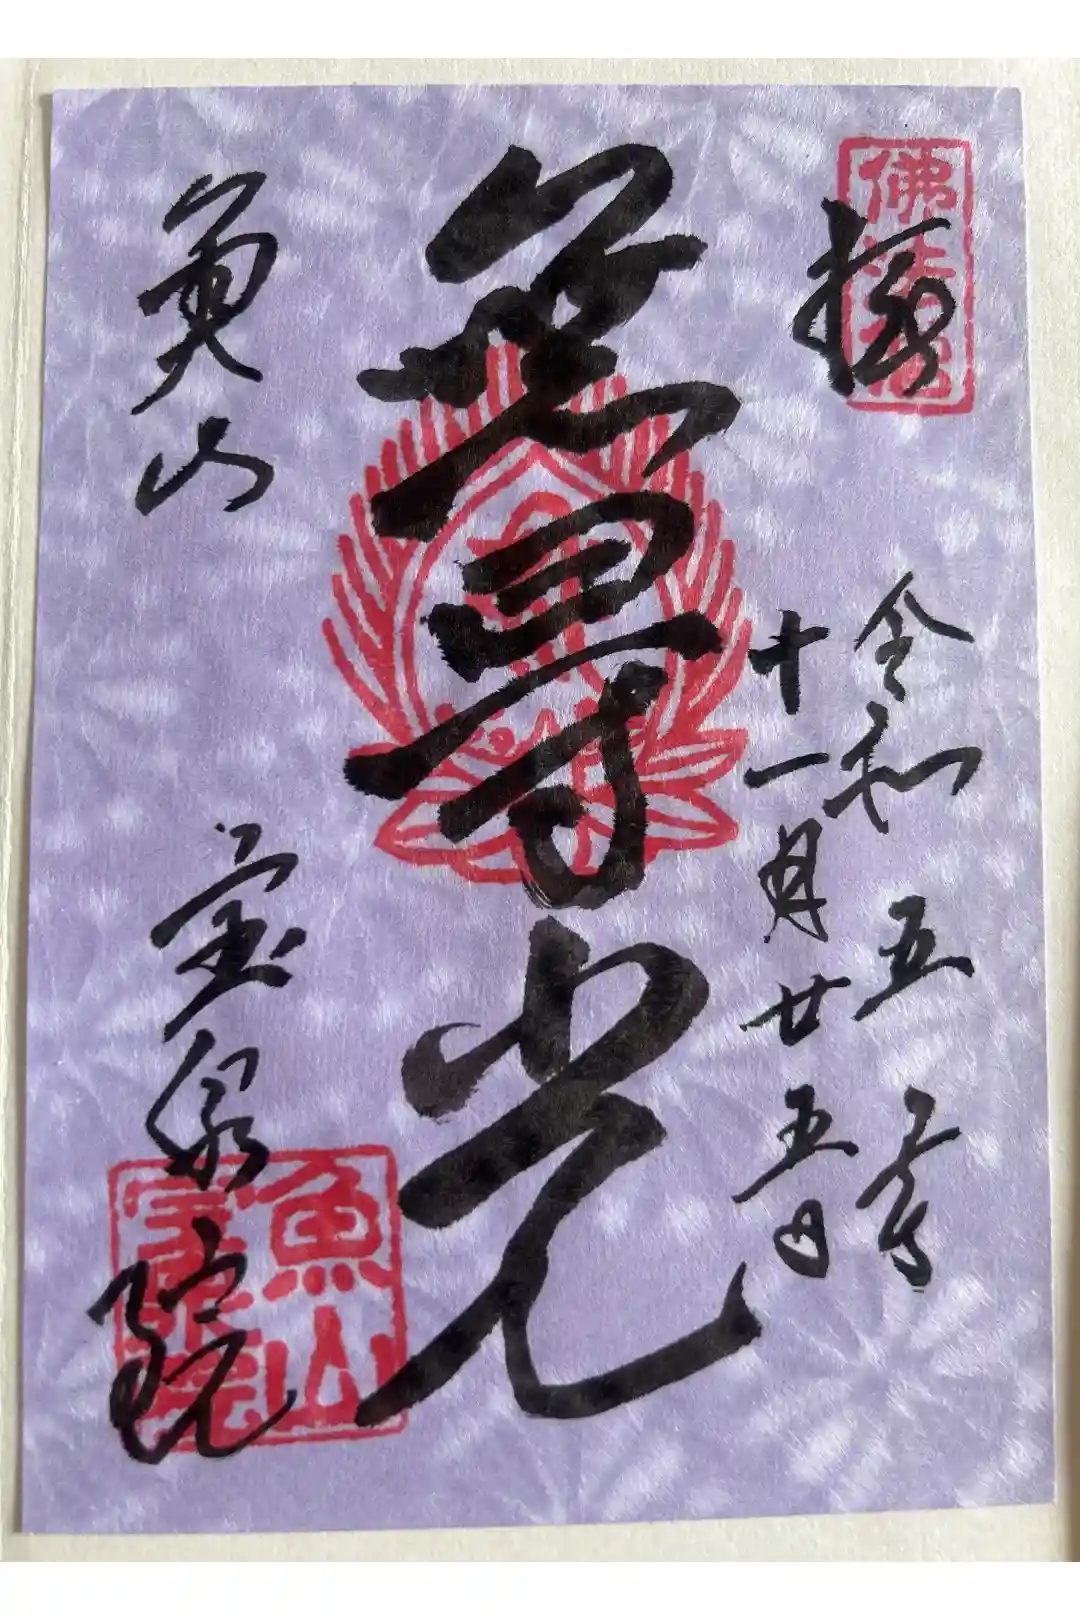 令和五年
十一月廿五日
無量寿光
魚山
宝泉院
魚山
寶泉院